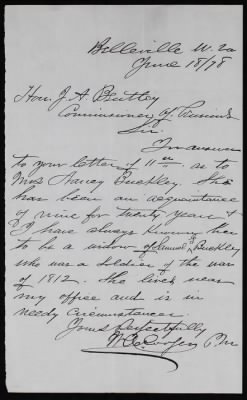 Belleville W. Va
June 18/78
Hon. J. A. Bentley
Commissioner of Pensions
Sir.
In answer
to your letter of 11th as to
Mrs Nancy Buckley. She
has been an acquaintance
of mine for twenty years &
I have always known her
to be a widow of Samuel Buckley
who was a soldier of the war
of 1812. She lives near
my office and is in
needy circumstances.
Yours Respectfully
P. M